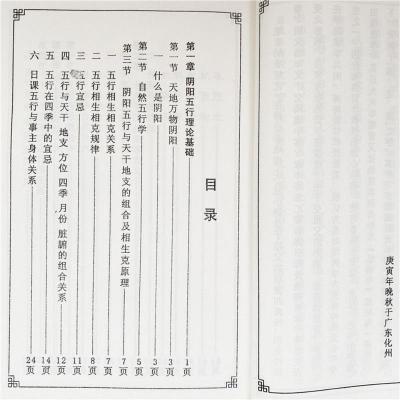 庚寅年晚秋于广东化州
目录
第一章 阴阳五行理论基础——1页
第一节 天地万物阴阳——3页
一 什么是阴阳——3页
第二节 自然五行学——5页
第三节 阴阳五行与天干地支的组合及相生克原理——7页
一 五行相生相克关系——7页
二 五行相生相克规律——8页
三 五行宜忌——11页
四 五行与天干 地支 方位 四季 月份 脏腑的组合关系——12页
五 五行在四季中的宜忌——14页
六 日课五行与事主身体关系——24页